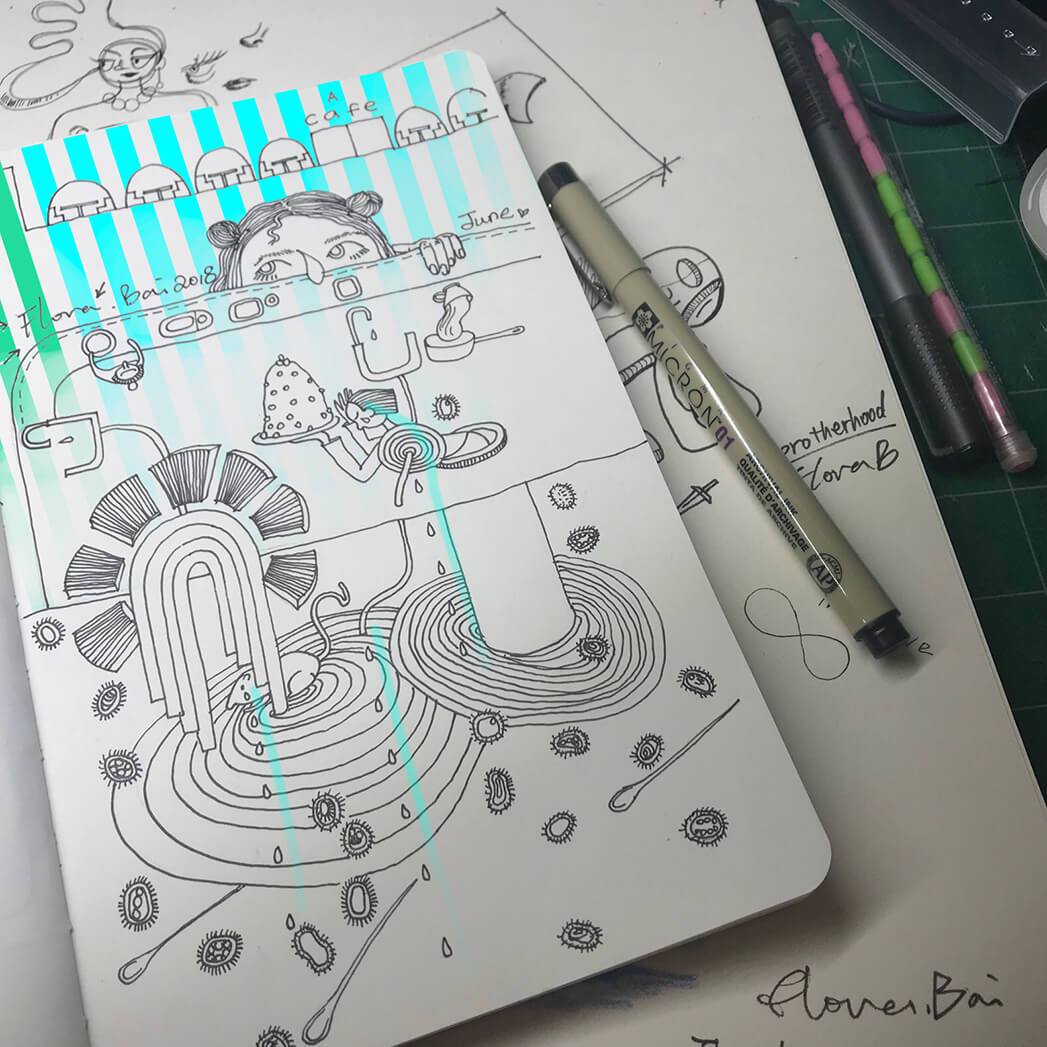 A
cafe
June
Flora. Bai 2018
MICRON 01
ARCHIVAL INK
QUALITÉ D'ARCHIVAGE
TINTA DE ARCHIVO
AP
brotherhood
FloraB
Flora.Bai